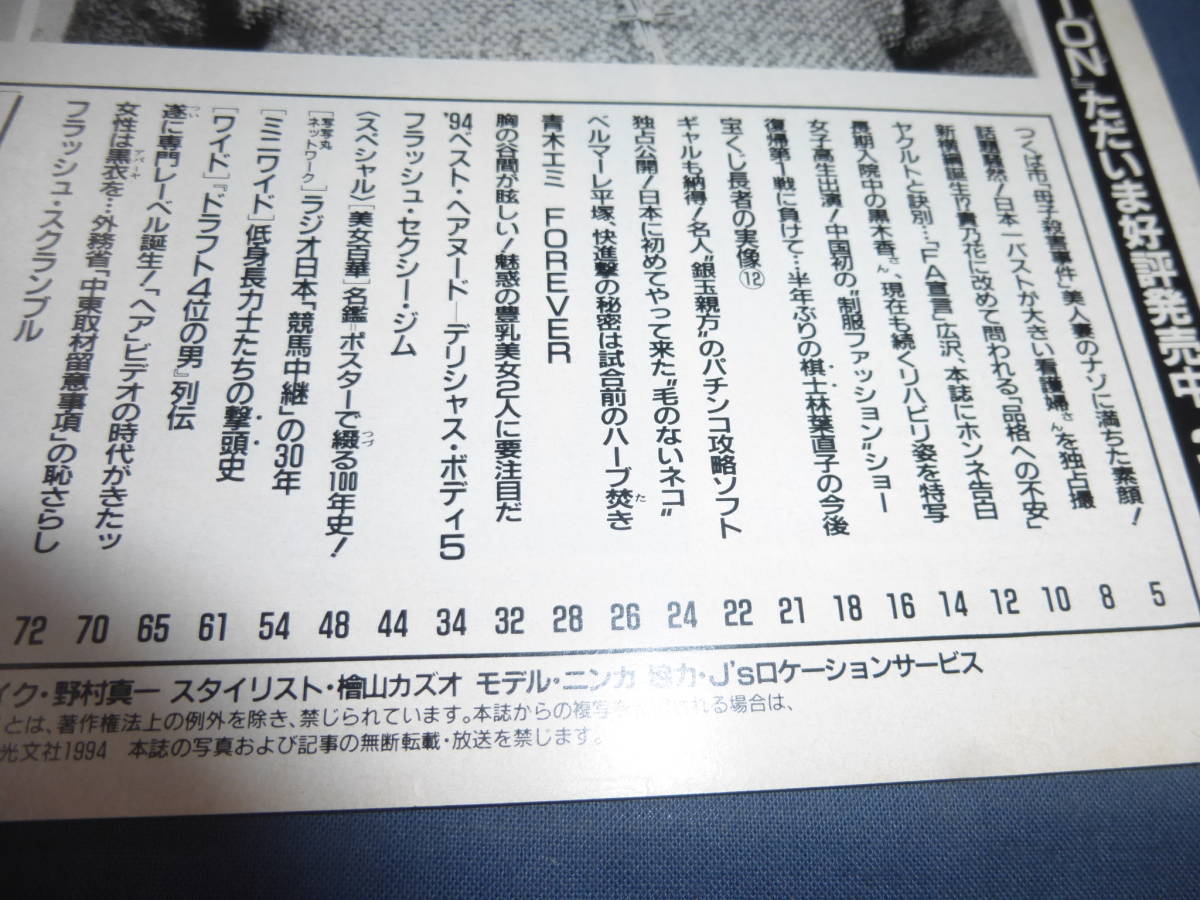 ION」ただいま好評発売中
つくば市「母子殺害事件」美人妻のナゾに満ちた素顔! 5
話題騒然!日本一バストが大きい看護婦さんを独占撮 8
新横綱誕生!?貴乃花に改めて問われる「品格への不安」 10
ヤクルトと訣別…「FA宣言」広沢、本誌にホンネ告白 12
長期入院中の黒木香さん、現在も続くリハビリ姿を特写 14
女子高生出演!中国初の“制服ファッション”ショー 16
復帰第一戦に負けて…半年ぶりの棋士林葉直子の今後 18
宝くじ長者の実像⑫ 21
ギャルも納得!名人“銀玉親方”のパチンコ攻略ソフト 22
独占公開!日本に初めてやって来た“毛のないネコ” 24
ベルマーレ平塚、快進撃の秘密は試合前のハーブ焚き 26
青木エミ FOREVER 28
胸の谷間が眩しい!魅惑の豊乳美女2人に要注目だ 32
'94ベスト・ヘアヌード―デリシャス・ボディ5 34
フラッシュ・セクシー・ジム 44
〈スペシャル〉[美女百華]名鑑=ポスターで綴る100年史! 48
[写写丸ネットワーク]ラジオ日本「競馬中継」の30年 54
[ミニワイド]低身長力士たちの撃頭史
[ワイド]『ドラフト4位の男』列伝 61
遂に専門レーベル誕生!「ヘア」ビデオの時代がきたッ 65
女性は黒衣を…外務省「中東取材留意事項」の恥さらし 70
フラッシュ・スクランブル 72
イク・野村真一 スタイリスト・檜山カズオ モデル・ニンカ 協力・J'sロケーションサービス
とは、著作権法上の例外を除き、禁じられています。本誌からの複写を される場合は、
光文社1994 本誌の写真および記事の無断転載・放送を禁じます。